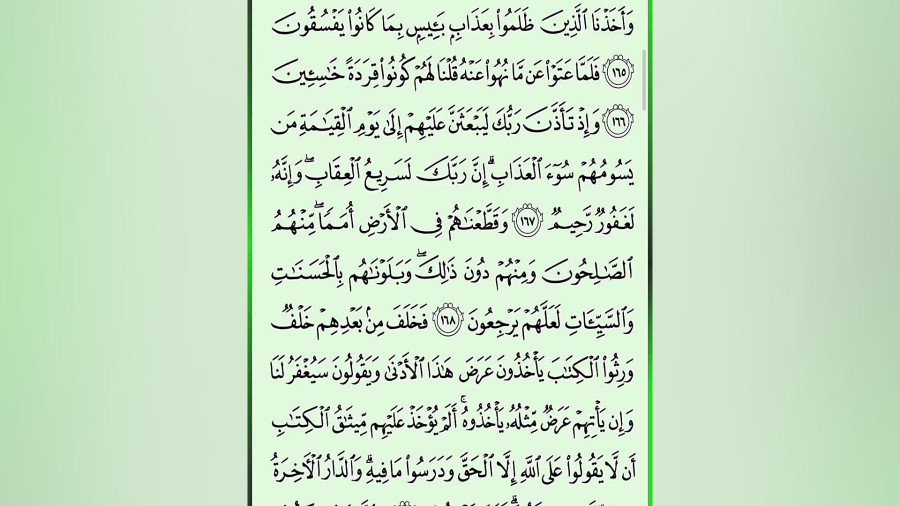 وَأَخَذْنَا ٱلَّذِينَ ظَلَمُوا۟ بِعَذَابٍۭ بَـِٔيسٍۭ بِمَا كَانُوا۟ يَفْسُقُونَ
١٦٥ فَلَمَّا عَتَوْا۟ عَن مَّا نُهُوا۟ عَنْهُ قُلْنَا لَهُمْ كُونُوا۟ قِرَدَةً خَـٰسِـِٔينَ
١٦٦ وَإِذْ تَأَذَّنَ رَبُّكَ لَيَبْعَثَنَّ عَلَيْهِمْ إِلَىٰ يَوْمِ ٱلْقِيَـٰمَةِ مَن
يَسُومُهُمْ سُوٓءَ ٱلْعَذَابِ ۗ إِنَّ رَبَّكَ لَسَرِيعُ ٱلْعِقَابِ ۖ وَإِنَّهُۥ
لَغَفُورٌ رَّحِيمٌ ١٦٧ وَقَطَّعْنَـٰهُمْ فِى ٱلْأَرْضِ أُمَمًا ۖ مِّنْهُمُ
ٱلصَّـٰلِحُونَ وَمِنْهُمْ دُونَ ذَٰلِكَ ۖ وَبَلَوْنَـٰهُم بِٱلْحَسَنَـٰتِ
وَٱلسَّيِّـَٔاتِ لَعَلَّهُمْ يَرْجِعُونَ ١٦٨ فَخَلَفَ مِنۢ بَعْدِهِمْ خَلْفٌ
وَرِثُوا۟ ٱلْكِتَـٰبَ يَأْخُذُونَ عَرَضَ هَـٰذَا ٱلْأَدْنَىٰ وَيَقُولُونَ سَيُغْفَرُ لَنَا
وَإِن يَأْتِهِمْ عَرَضٌ مِّثْلُهُۥ يَأْخُذُوهُ ۚ أَلَمْ يُؤْخَذْ عَلَيْهِم مِّيثَـٰقُ ٱلْكِتَـٰبِ
أَن لَّا يَقُولُوا۟ عَلَى ٱللَّهِ إِلَّا ٱلْحَقَّ وَدَرَسُوا۟ مَا فِيهِ ۗ وَٱلدَّارُ ٱلْـَٔاخِرَةُ